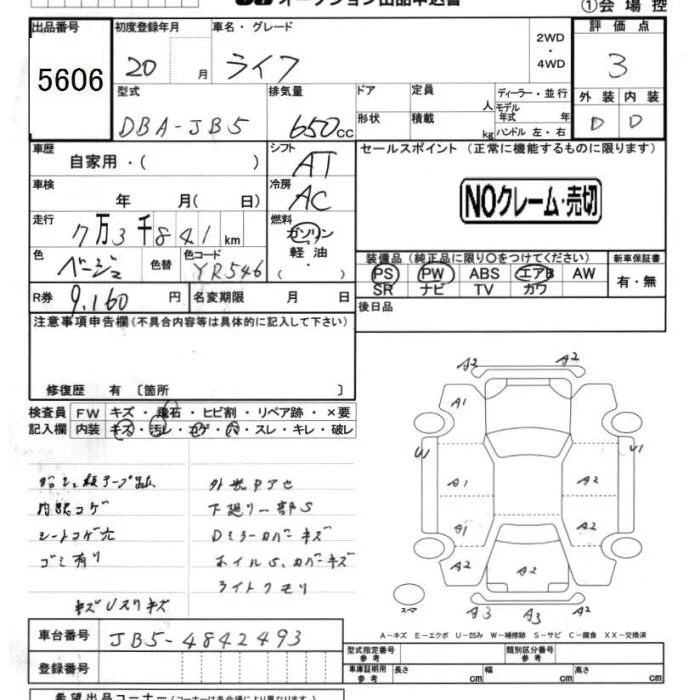 オークション出品申込書
①会場控
出品番号
5606
初度登録年月
20 月
車名・グレード
ライフ
2WD
・
4WD
評価点
3
型式
DBA-JB5
排気量
650cc
ドア
定員
人
形状
積載
kg
ディーラー・並行
モデル年式 年
ハンドル 左・右
外装 内装
D D
車歴
自家用・( )
シフト
AT
車検
年 月( 日)
冷房
AC
走行
7万3千841km
燃料
ガソリン
・
軽油
・
( )
色
ベージュ
色替
色コード
YR546
R券 9,160円
名変期限 月 日
セールスポイント (正常に機能するものに限ります)
NOクレーム・売切
装備品(純正品に限り〇をつけてください)
PS PW ABS エアB AW
SR ナビ TV カワ
新車保証書
有・無
後日品
注意事項申告欄(不具合内容等は具体的に記入して下さい)
修復歴 有 〔箇所 〕
検査員記入欄
FW キズ・飛石・ヒビ割・リペア跡・×要
内装 キズ・汚レ・コゲ・穴・スレ・キレ・破レ
内張コゲ
シートコゲ穴
ゴミ有り
外装色アセ
下廻り一部S
Dミラーカバーキズ
ホイルS、カバーキズ
ライトクモリ
キズUスリキズ
A2 A2
A1
U1 U1
A1 A2
A1 A2
A2 A2
A3 A3 A2
スペア
A-キズ E-エクボ U-凹み W-補修跡 S-サビ C-腐食 XX-交換済
車台番号
JB5-4842493
登録番号
型式指定番号
参考
類別区分番号
参考
車庫証明用
参考
長さ cm
幅 cm
高さ cm
希望出品コーナー(コーナーは各会場により異なります)